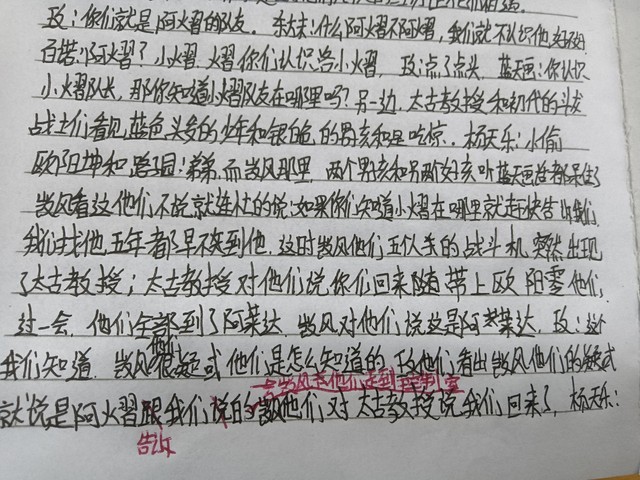 玫：你们就是阿火習的队友．东大未：什么阿火習不阿火習，我们就不认识他
百诺：阿火習？小火習．火習你们认识吗小火習．玫：点了点头．蓝天画：你认识
小火習队长，那你知道小火習队友在哪里吗？另一边．太古教授和初代的斗龙
战士们看见蓝色头发的少年和银色的男孩和是吃惊．．杨天乐：小偷
欧阳坤和路 ：弟弟．而岚风那里．两个男孩和另两个女孩听蓝天画 都呆住了
岚风看这他们不说就连忙的说：如果你们知道小火習在哪里就赶快告诉我们，
我们找他五年都早不到他．这时岚风他们五个人杀的战斗机突然出现
了太古教授；太古教授对他们说你们回来随带上欧阳零他们，
过一会．他们全部到了阿莱达．岚风对他们说这是阿莱达．玫：这个
我们知道．岚风他们很疑或他们是怎么知道的．玫他们看出岚风他们的疑或
岚风把他们走到
就说是阿火習跟我们说的 他们对太古教授说我们回来了．杨天乐：
告诉